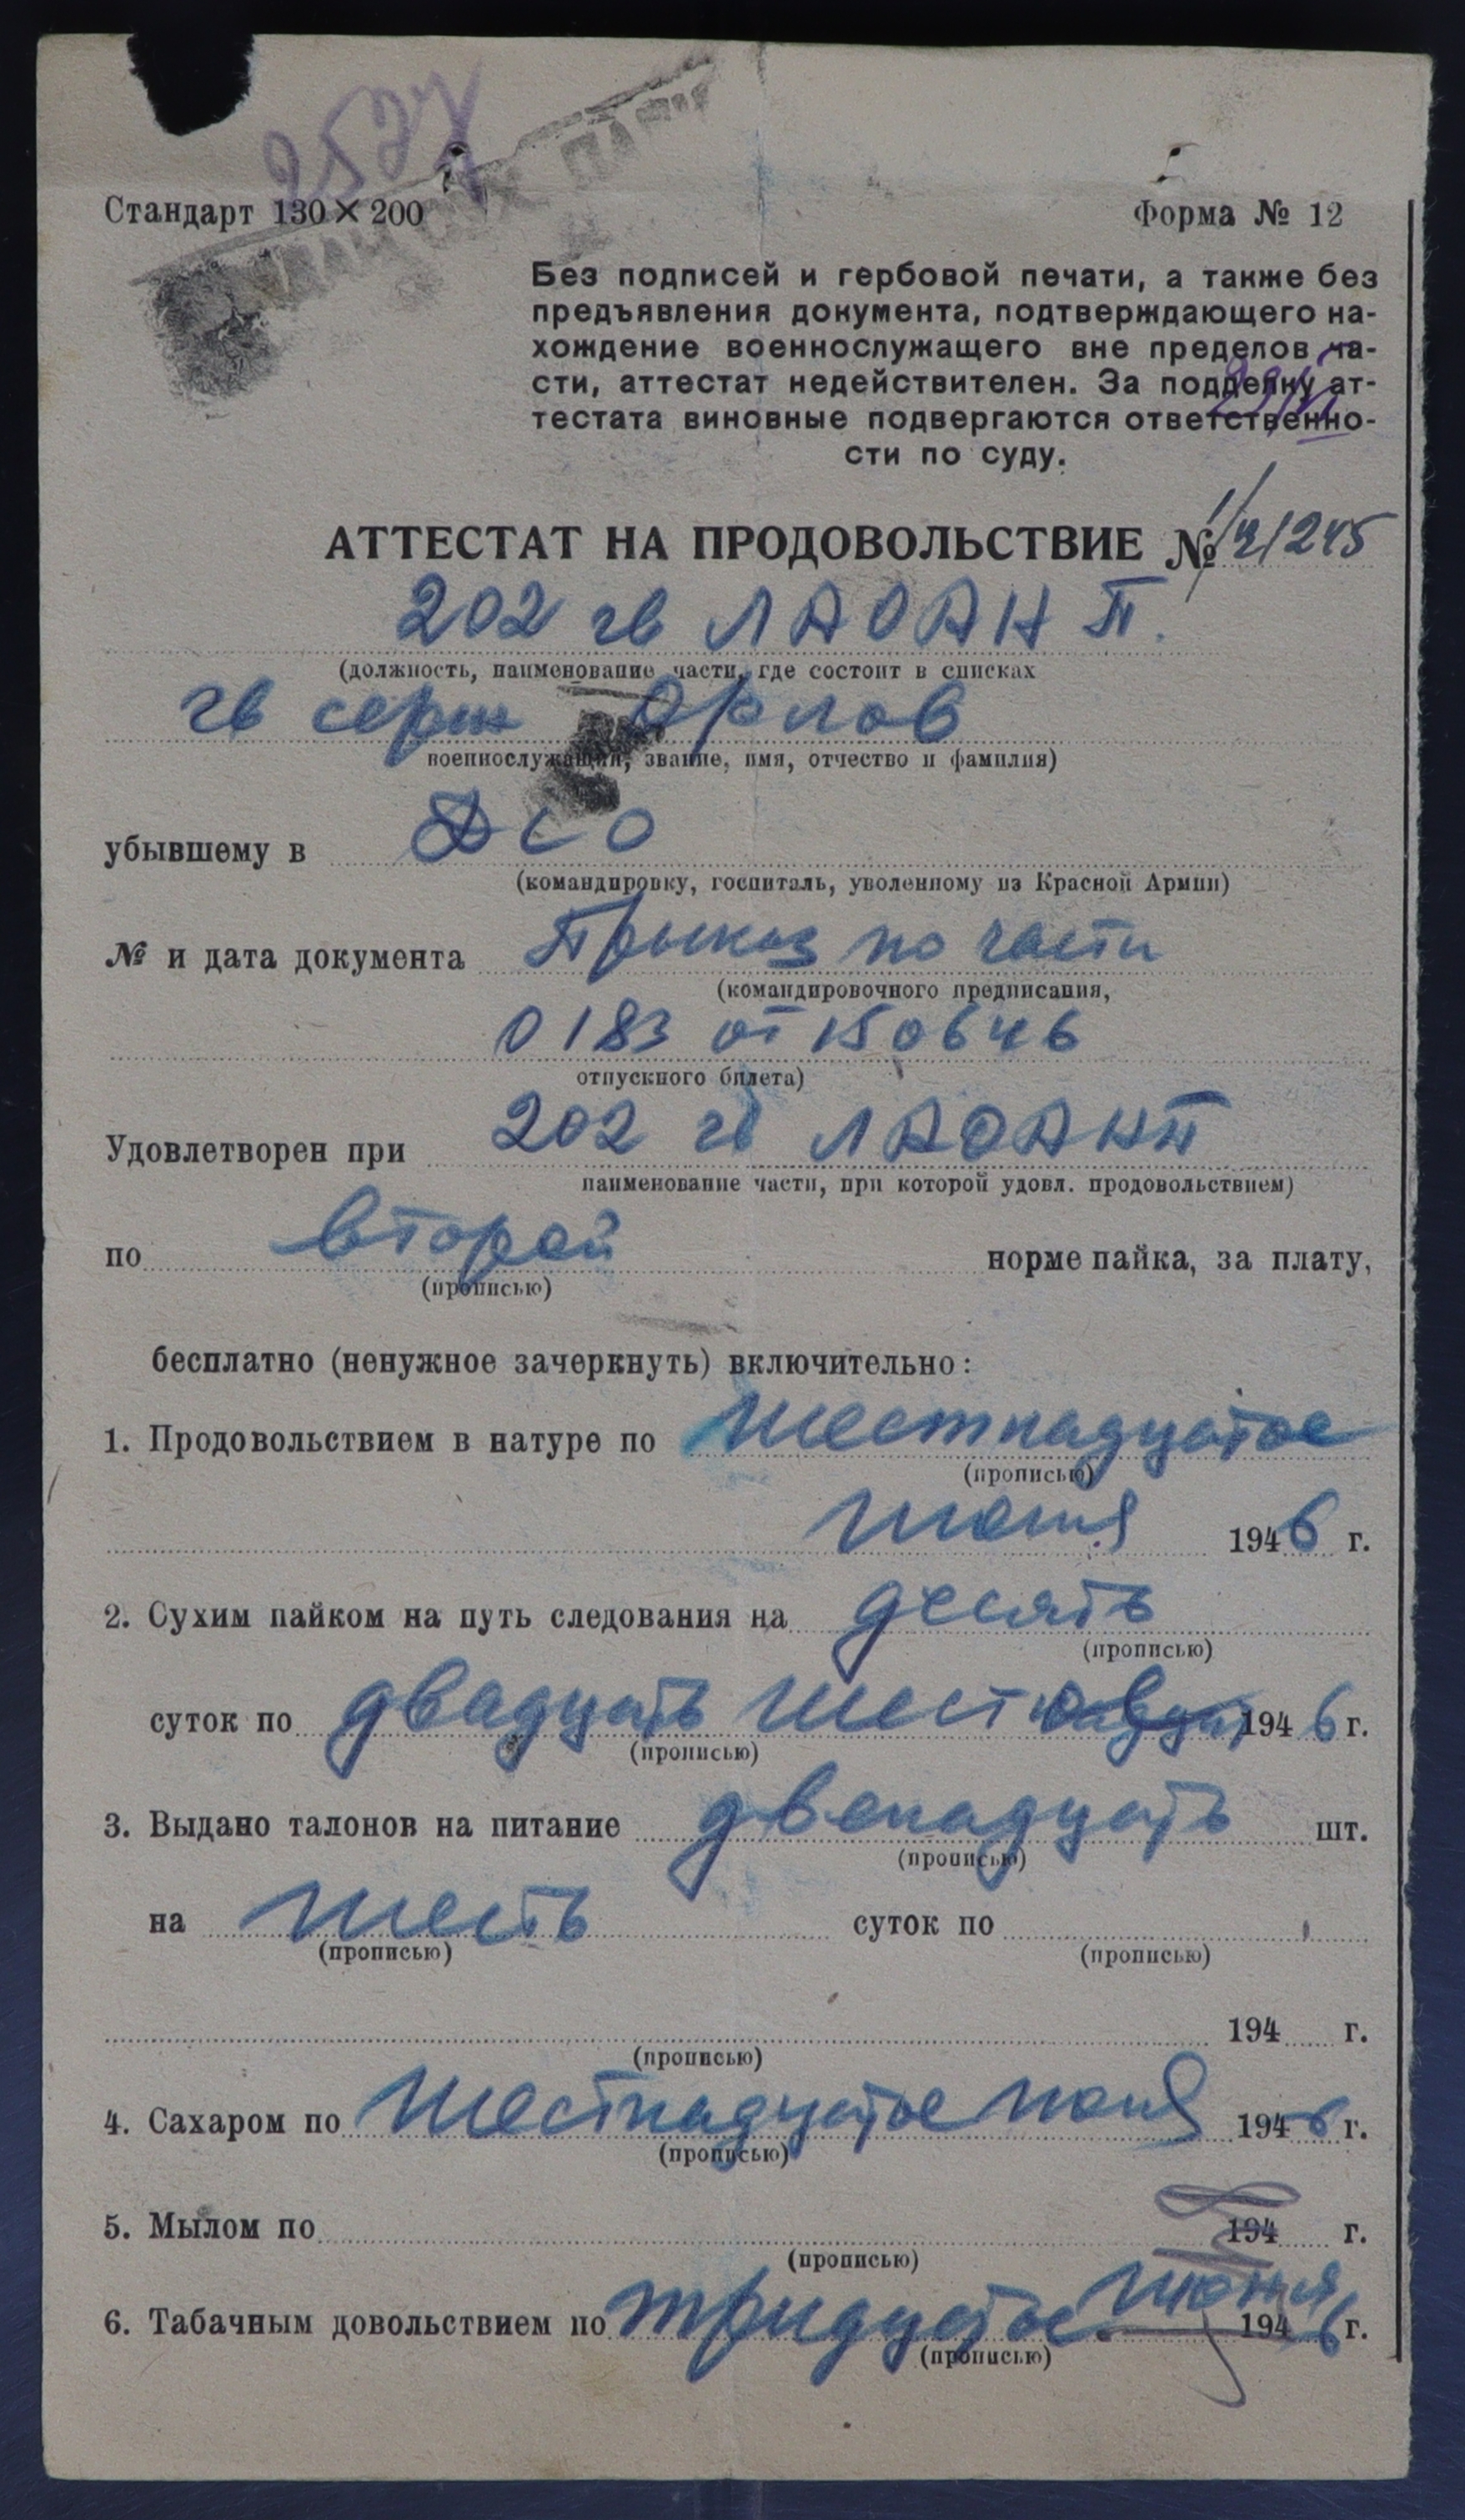 Стандарт 130×200
Форма № 12
Без подписей и гербовой печати, а также без
предъявления документа, подтверждающего на-
хождение военнослужащего вне пределов ча-
сти, аттестат недействителен. За подделку ат-
тестата виновные подвергаются ответственно-
сти по суду.
АТТЕСТАТ НА ПРОДОВОЛЬСТВИЕ №
202 гв ЛАОАНП.
(должность, наименование части, где состоит в списках
гв серж Орлов
военнослужащий, звание, имя, отчество и фамилия)
убывшему в
(командировку, госпиталь, уволенному из Красной Армии)
№ и дата документа Приказ по части
(командировочного предписания,
0183 от 150646
отпускного билета)
Удовлетворен при 202 гв ЛАОАНП
наименование части, при которой удовл. продовольствием)
по второй норме пайка, за плату,
(прописью)
бесплатно (ненужное зачеркнуть) включительно:
1. Продовольствием в натуре по шестнадцатое
(прописью)
июня 1946 г.
2. Сухим пайком на путь следования на десять
(прописью)
суток по двадцать шест 1946 г.
(прописью)
3. Выдано талонов на питание двенадцать шт.
(прописью)
на шесть суток по
(прописью) (прописью)
194 г.
(прописью)
4. Сахаром по шестнадцатое июня 1946 г.
(прописью)
5. Мылом по 194 г.
(прописью)
6. Табачным довольствием по тридцатое июня 1946 г.
(прописью)